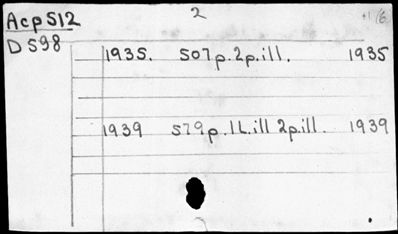 Acp512 2
D598
1935. 507p.2p.ill. 1935
1939 579p.1L.ill 2p.ill. 1939